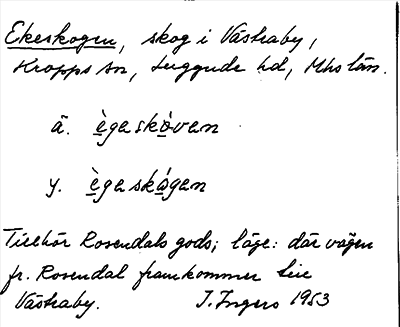 Ekeskogen, skog i Västraby,
Kropps sn, Luggude hd, Mhs län.
ä. ègeskòven
y. ègeskógen
Tillhör Rosendals gods; läge: där vägen
fr. Rosendal framkommer till
Västraby. I. Ingers 1953